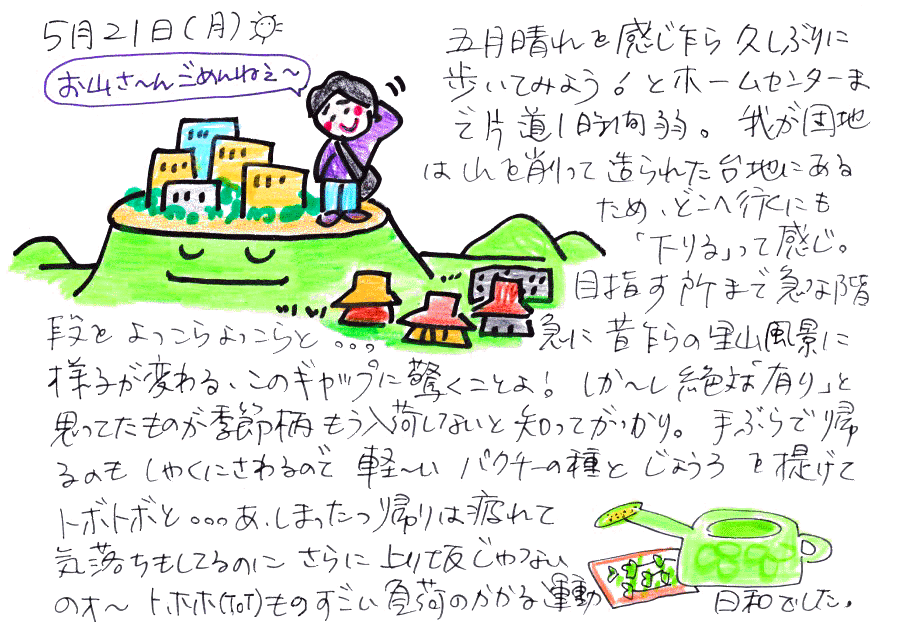 5月21日(月)
お山さ〜んごめんねぇ〜
五月晴れを感じ乍ら久しぶりに
歩いてみよう!とホームセンターま
で片道1時間弱。我が団地
は山を削って造られた台地にある
ため、どこへ行くにも
「下りる」って感じ。
目指す所まで急な階
段をよっこらよっこらと...。急に昔乍らの里山風景に
様子が変わる、このギャップに驚くことよ!しか〜し絶対「有り」と
思ってたものが季節柄もう入荷してないと知ってがっかり。手ぶらで帰
るのもしゃくにさわるので軽〜いパクチーの種とじょうろを提げて
トボトボと...あ、しまったっ帰りは疲れて
気落ちもしてるのにさらに上り坂じゃない
のォ〜トホホ(ToT)ものすごい負荷のかかる運動日和でした。